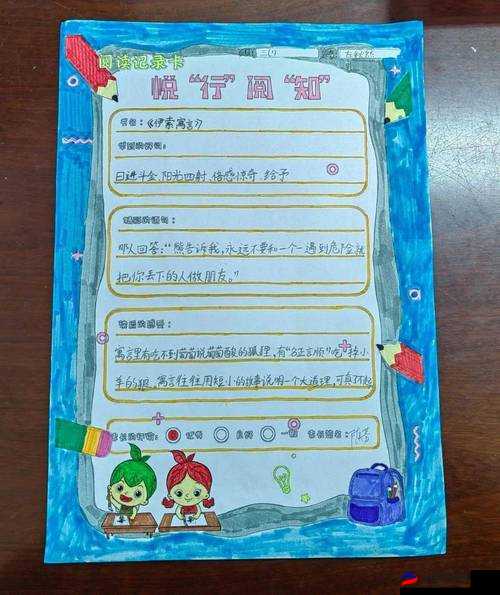 阅读记录卡
悦“行”阅“知”
书名：《伊索寓言》
日进斗金、阳光四射、倍感惊奇、给予
精彩的语句：
那人回答：“熊告诉我，永远不要和一个一遇到危险就
把你丢下的人做朋友。”
读后的感受：
寓言里有吃不到葡萄说葡萄酸的狐狸，有“名正言顺”吃掉小
羊的狼，寓言往往用短小的故事说明一个大道理，可真不起
家长的评价： 优秀 良好 一般 家长签名：